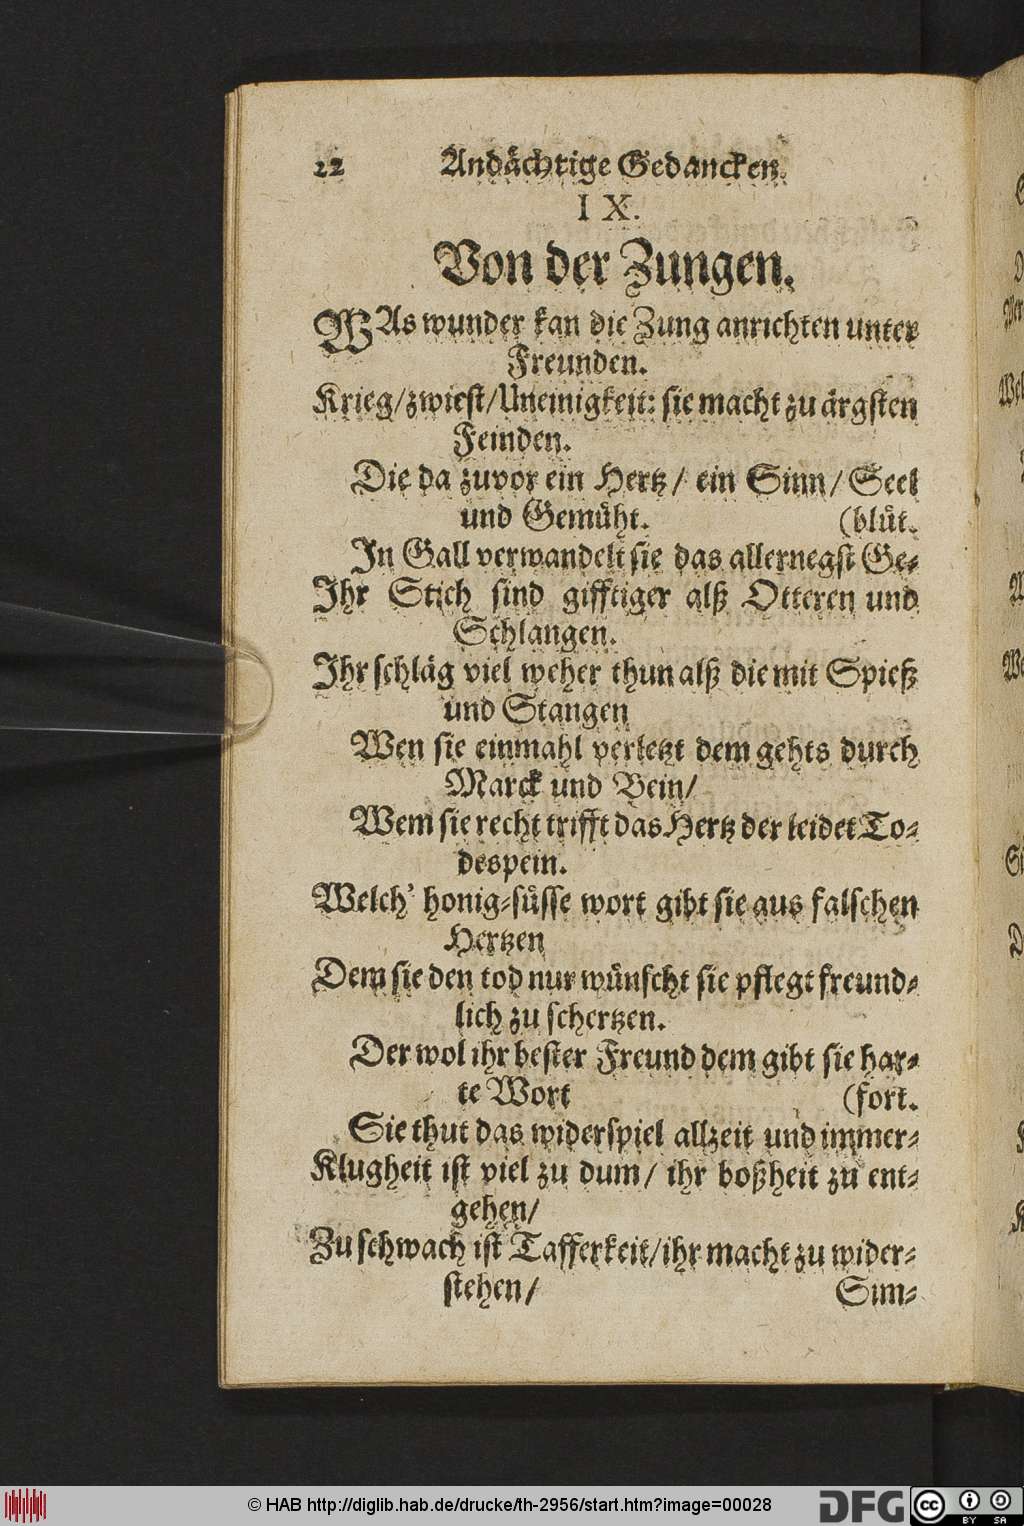 22 Andächtige Gedancken.
IX.
Von der Zungen.
WAs wunder kan die Zung anrichten unter
Freunden.
Krieg/zwiest/Uneinigkeit: sie macht zu ärgsten
Feinden.
Die da zuvor ein Hertz/ ein Sinn/ Seel
und Gemüht. (blüt.
In Gall verwandelt sie das allernegst Ge-
Ihr Stich sind gifftiger alß Otteren und
Schlangen.
Ihr schläg viel weher thun alß die mit Spieß
und Stangen
Wen sie einmahl verletzt dem gehts durch
Marck und Bein/
Wem sie recht trifft das Hertz der leidet To-
despein.
Welch' honig-süsse wort gibt sie aus falschen
Hertzen
Dem sie den tod nur wünscht sie pflegt freund-
lich zu schertzen.
Der wol ihr bester Freund dem gibt sie har-
te Wort (fort.
Sie thut das widerspiel allzeit und immer-
Klugheit ist viel zu dum/ ihr boßheit zu ent-
gehen/
Zu schwach ist Tafferkeit/ihr macht zu wider-
stehen/ Sim-
© HAB http://diglib.hab.de/drucke/th-2956/start.htm?image=00028
DFG
cc BY SA